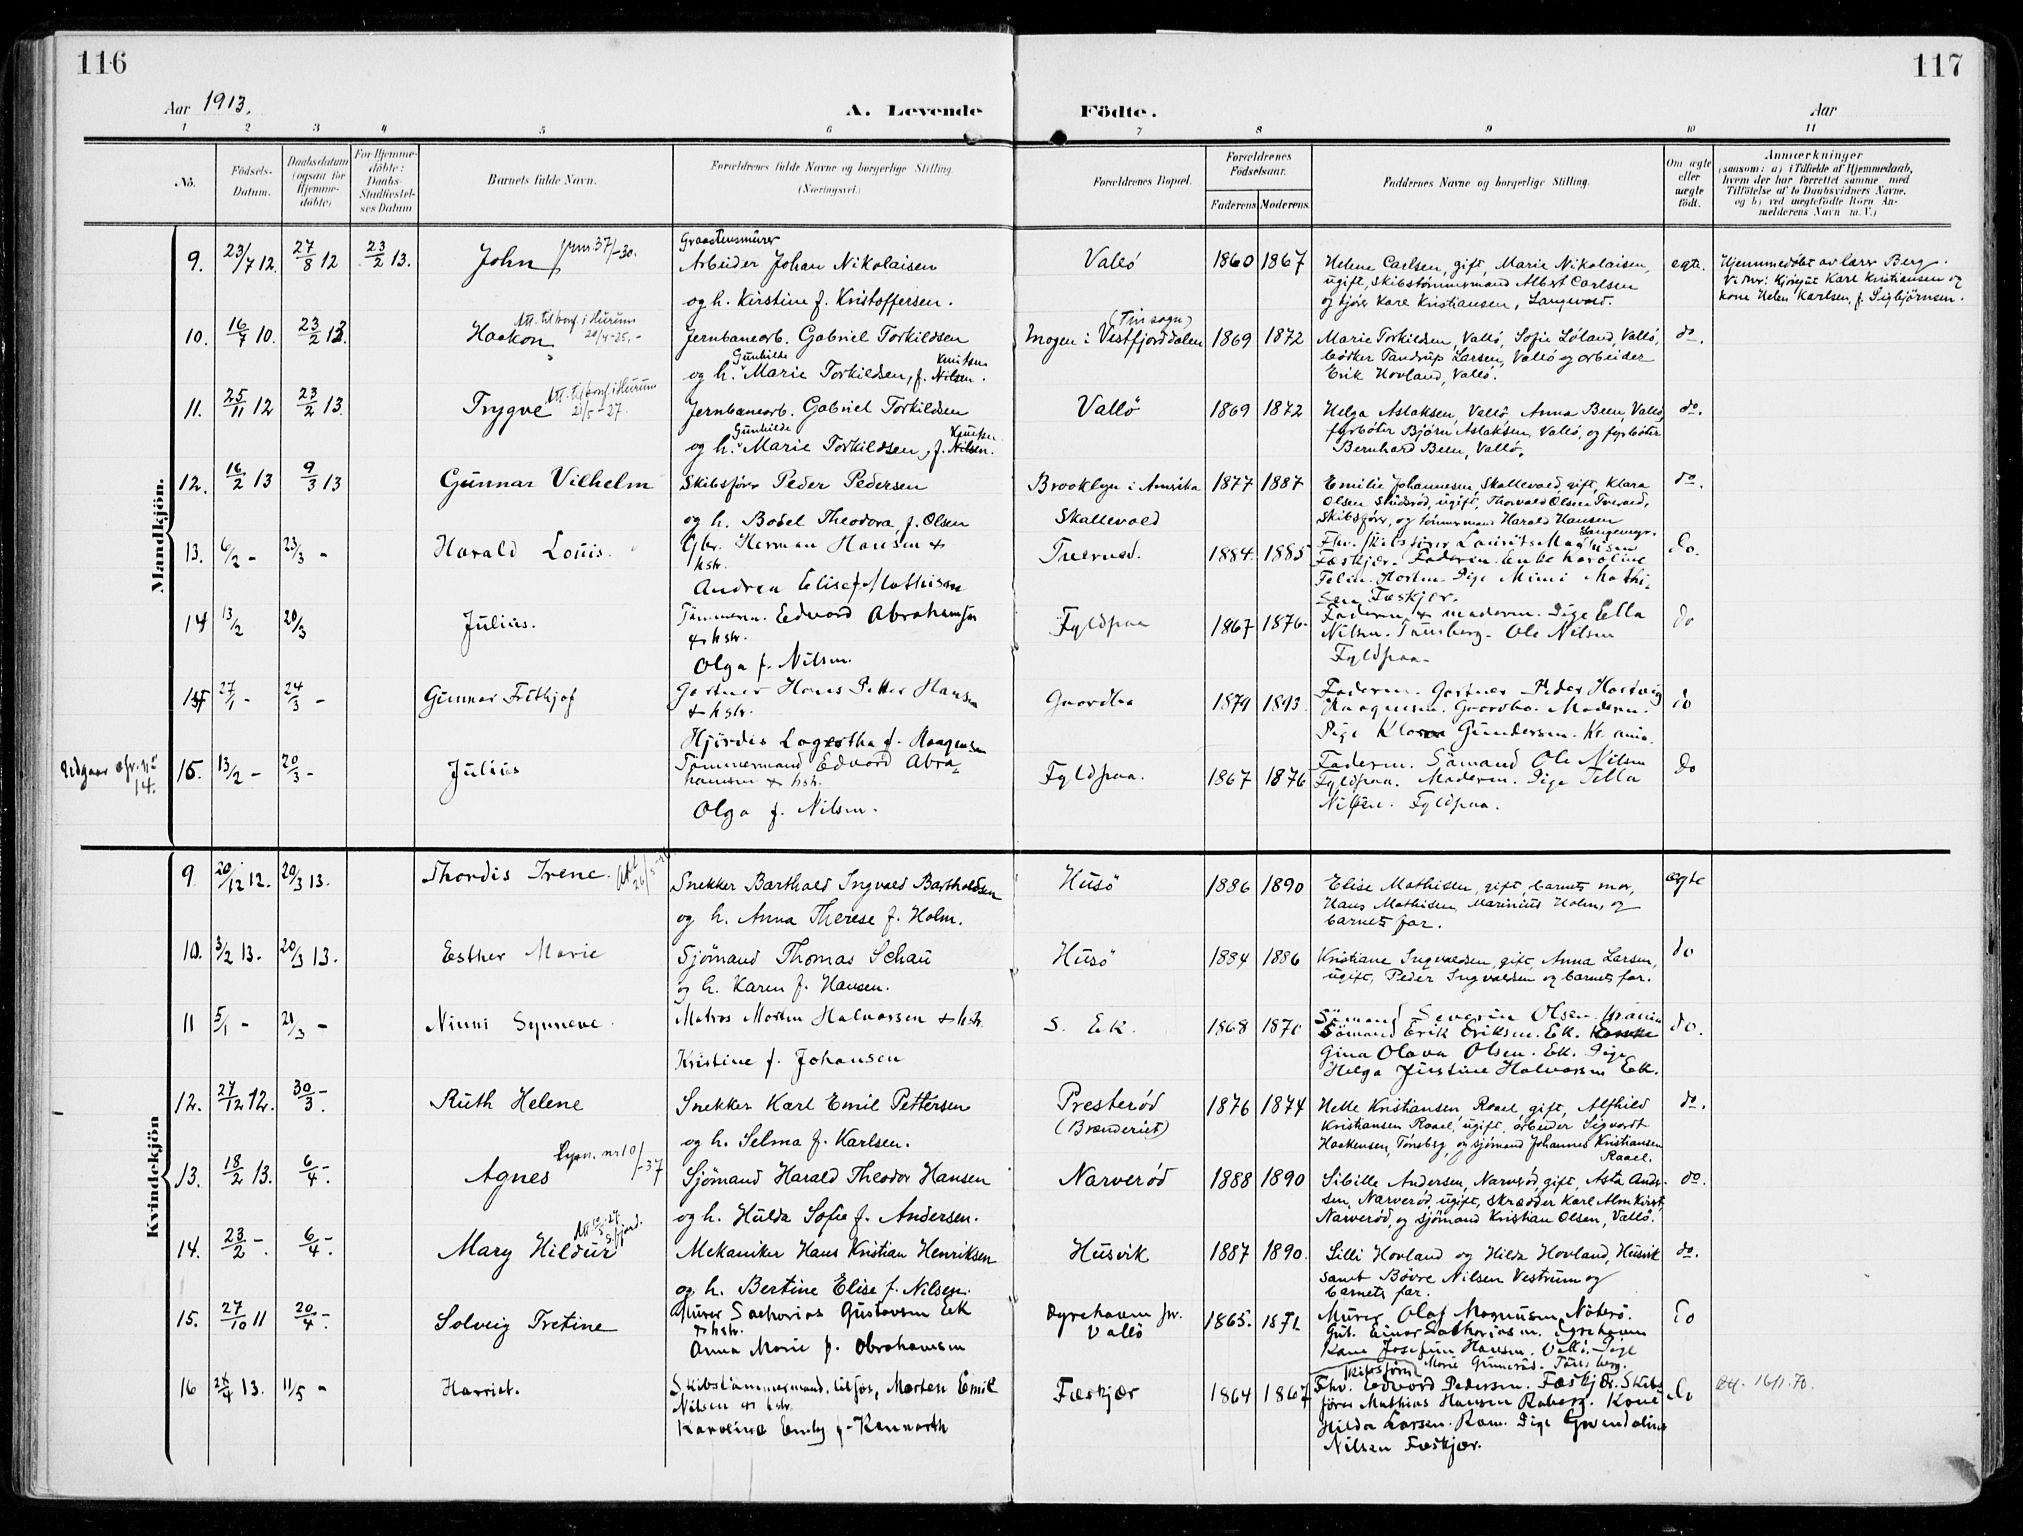 116
117
Aar 1913.
A. Levende Födte.
Aar
1 2 3 4 5 6 7 8 9 10 11
No.
Födsels-Datum.
Daabsdatum (ogsaa for Hjemmedöbte)
For Hjemmedöbte: Daabs-Stadfæstelses Datum
Barnets fulde Navn.
Forældrenes fulde Navne og borgerlige Stilling. (Næringsvei.)
Forældrenes Bopæl.
Forældrenes Födselsaar.
Faderens Moderens
Faddernes Navne og borgerlige Stilling.
Om ægte eller uægte födt.
Anmærkninger
(saasom: a) i Tilfælde af Hjemmedaab, hvem der har forrettet samme med Tilföielse af to Daabsvidners Navne, og b) ved uægtefödte Börn Anmelderens Navn m. V.)
Mandkjön.
9. 23/7 12. 27/8 12 23/2 13. John 37/-30. Graastensmurer
Arbeider Johan Nikolaisen
og h. Kirstine f. Kristoffersen.
Vallö 1860 1867 Helene Carlsen, gift, Marie Nikolaisen,
ugift, Skibstømmermand Albert Carlsen
og Karl Kristiansen, Langvord.
egte. Hjemmedöbt av lærer Berg.
Karl Kristiansen og
kone Helen Karlsen, f. Sigbjörnsen.
10. 16/7 10. 23/2 13. Haakon Att. til konf. i Hurum 20/4-25.
Jernbanearb. Gabriel Torkildsen
og h. Gunhilde Marie Torkildsen, f. Nilsen. Knutsen
Mogen i Vestfjorddalen (Tinsogn) 1869 1872 Marie Torkildsen, Vallö, Sofie Löland, Vallö,
bötker Tandrup Larsen, Vallö og arbeider
Erik Hovland, Vallö.
do.
11. 25/11 12 23/2 13. Trygve Att. til konf. i Hurum 21/5-27.
Jernbanearb. Gabriel Torkildsen
og h. Gunhilde Marie Torkildsen, f. Nilsen. Knutsen
Vallö 1869 1872 Helga Aslaksen, Vallö, Anna Been, Vallö,
fyrböter Björn Aslaksen, Vallö, og fyrböter
Bernhard Been, Vallö.
do.
12. 16/2 13 9/3 13 Gunnar Vilhelm Skibsförer Peder Pedersen
og h. Bodel Theodora f. Olsen
Brooklyn i Amerika
Skallevold
1877 1887 Emilie Johannesen, Skallevold, gift, Klara
Olsen, ugift, Thorvald Olsen Tveraed,
Skibsförer, og tömmermand Harald Hansen
do.
13. 6/2 - 23/3 - Harald Louis. Gbr. Herman Hansen &
hstr.
Andrea Elise f. Mathisen
Tverved. 1884. 1885 Fhv. Skibsförer Lauritz Mathisen
Fæskjær. Faderen. Enke Karoline
Horten. Pige Mimi Mathisen
Fæskjær.
do.
14 13/2 20/3 Julius. Tömmerm. Edvard Abrahamsen
& hstr.
Olga f. Nilsen.
Fyldpaa 1867 1876. Faderen & moderen. Pige Ella
Nilsen. Tönsberg. Ole Nilsen
Fyldpaa.
do
15 27/1 - 24/3 - Gunnar Frithjof Gartner Hans Petter Hansen
& hstr.
Hjördis Lagertha f. Haagensen
Gaardbo 1879 1893. Faderen. Gartner Peder Hartvig
Haagensen. Gaardbo. Moderen.
Pige Klara Gundersen. Kr.ania.
do
Udgaar cfr. no 14.
15. 13/2 - 20/3 - Julius Tömmermand Edvard Abrahamsen
& hstr.
Olga f. Nilsen.
Fyldpaa. 1867 1876 Faderen. Sömand Ole Nilsen
Fyldpaa. Moderen. Pige Tella
Nilsen. Fyldpaa.
do
Kvindekjön
9 20/12 12. 20/3 13. Thordis Irene. Att. 26/5
Snekker Barthold Ingvald Bartholdsen
og h. Anna Therese f. Holm.
Husö 1886 1890 Elise Mathisen, gift, barnets mor,
Hans Mathisen, Marinius Holm, og
barnets far.
ægte
10. 3/2 13. 20/3 13. Esther Marie Sjömand Thomas Schau
og h. Karen f. Hansen.
Husö 1884 1886 Kristiane Ingvaldsen, gift, Anna Larsen,
ugift, Peder Ingvaldsen og barnets far.
do
11 5/1 - 21/3 - Ninni Synneve. Matros Morten Halvorsen & hstr.
Kristine f. Johansen
S. Ek. 1868 1870 Sömand Severin Olsen.
Sömand Erik Eriksen. Ek.
Gina Olava Olsen. Ek. Pige
Helga Justine Halvorsen Ek.
do.
12. 27/12 12. 30/3 -. Ruth Helene Snekker Karl Emil Pettersen
og h. Selma f. Karlsen.
Presterød
(Brænderiet)
1876 1874 Helle Kristiansen, Raael, gift, Alfhild
Kristiansen Raael, ugift, arbeider Sigvart
Haakensen, Tönsberg, og sjömand Johannes Kristiansen
Raael.
do.
13. 18/2 13. 6/4 -. Agnes nr 10/-37
Sjömand Harald Theodor Hansen
og h. Hulda Sofie f. Andersen.
Narverød 1888 1890 Sibille Andersen, Narverød, gift, Asta Andersen,
Narverød, ugift, skrædder Karl
Narverød, og sjömand Kristian Olsen, Vallö.
do.
14. 23/2 -. 6/4 -. Mary Hildur Att. S.fjord.
Mekaniker Hans Kristian Henriksen
og h. Bertine Elise f. Nilsen.
Husvik 1887 1890. Silli Hovland og Hilda Hovland, Husvik
samt Bövre Nilsen Vestrum og
barnets far.
do.
15. 27/10 11 20/4 -. Solveig Tretine Murer Sacharias Gustavsen Ek
& hstr.
Anna Marie f. Abrahamsen
Dyrehavn pr.
Vallö
1865. 1871 Murer Olaf Magnusen Nöterö.
Gut. Einar Sachariasen. Dyrehavn
Kone Josefine Hansen. Vallö. Pige
Marie Tönsberg.
do
16 28/4 13. 11/5 - Harriet. Skibstömmermand, tilsjös, Morten Emil
Nilsen & hstr.
Karoline Emily f. Kenworth
Fæskjær 1864 1867 Fhv. Skibsförer Edvard Pedersen. Fæskjær. Skibsförer
Mathias Hansen Roberg. Kone
Hilda Larsen. Ram. Pige Gwendoline
Nilsen Fæskjær.
do Att. 16/1.70.